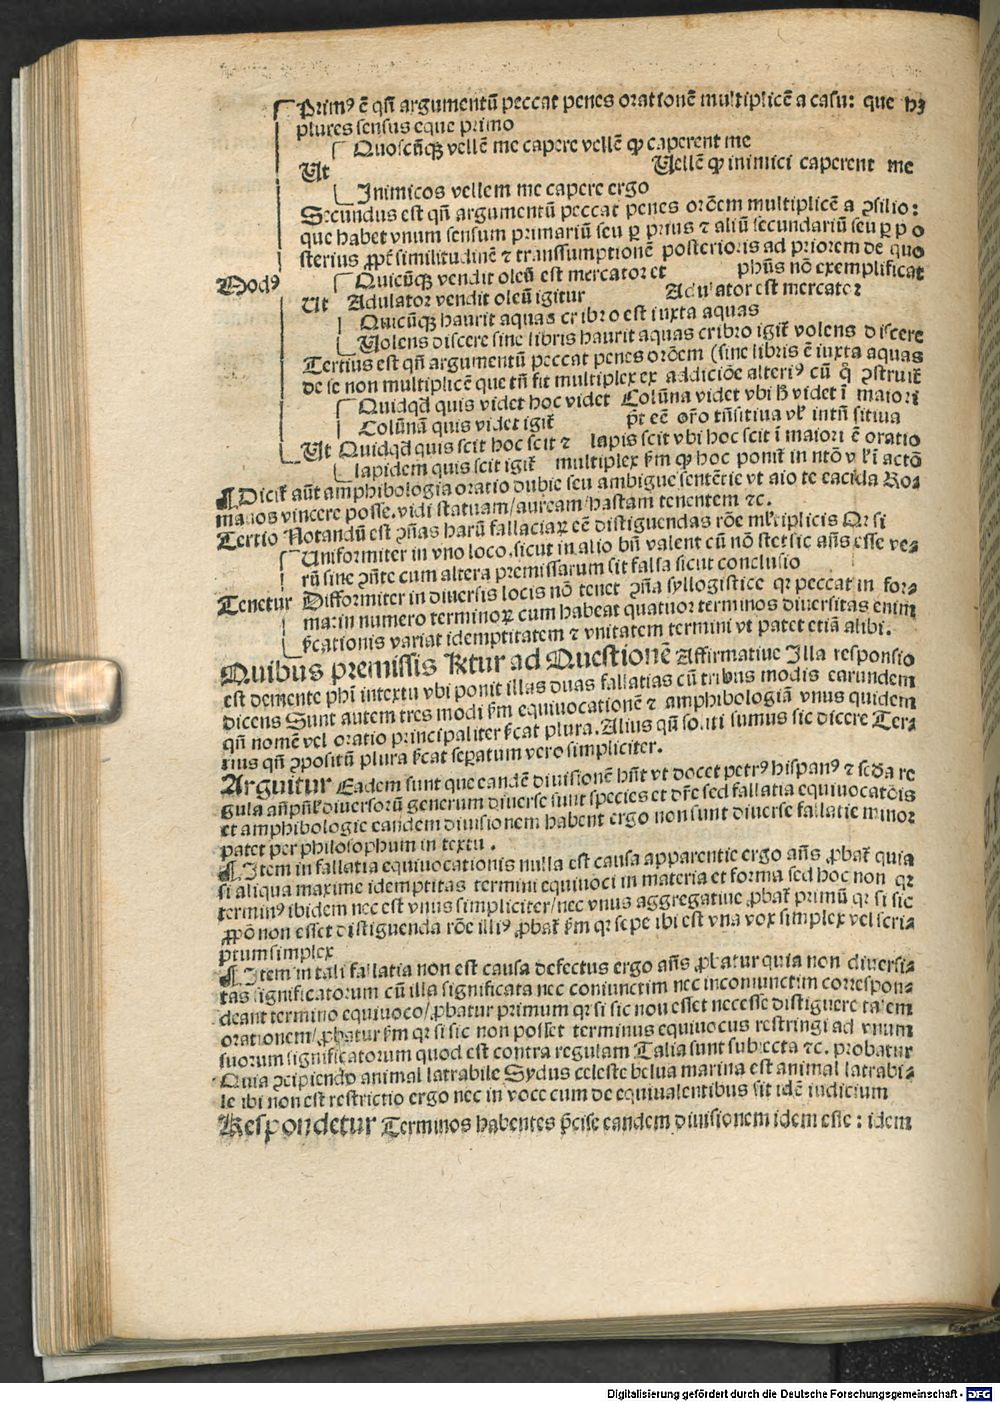 Primꝰ ē qn̄ argumentū peccat penes orationē multiplicē a casu: que hꝫ
plures sensus eque primo
Quoscūqꝫ vellē me capere vellē ꝙ caperent me
Ut Vellē ꝙ inimici caperent me
Inimicos vellem me capere ergo
Secundus est qn̄ argumentū peccat penes orōem multiplicē a ꝯsilio:
que habet vnum sensum primariū seu ꝑ prius ⁊ aliū secundariū seu ꝑ po
sterius ꝓpt̄ similitudinē ⁊ transsumptionē posterioris ad priorem de quo
Modꝰ Quicūqꝫ vendit oleū est mercator et phūs nō exemplificat
Ut Adulator vendit oleū igitur Adulator est mercator
Quicūqꝫ haurit aquas cribro est iuxta aquas
Volens discere sine libris haurit aquas cribro igit̄ volens discere
Tertius est qn̄ argumentū peccat penes orōem (sine libris ē iuxta aquas
de se non multiplicē que tn̄ fit multiplex ex addiciōe alteriꝰ cū q̄ ꝯstruit̄
Quidqd̄ quis videt hoc videt Colūna videt vbi ly videt ī maiori
Colūnā quis videt igit̄ pt̄ eē or̄o trāsitiua vl̓ intrāsitiua
Ut Quidqd̄ quis scit hoc scit ⁊ lapis scit vbi hoc scit ī maiori ē oratio
lapidem quis scit igit̄ multiplex ẜm ꝙ hoc ponit̄ in ntō vl̓ ī actō
¶ Dicit̄ aūt amphibologia oratio dubie seu ambigue sentētie vt aio te eacida Ro⸗
manos vincere posse. vidi statuam/auream/hastam tenentem ⁊c.
Tertio Notandū est ꝯn̄as harū fallaciaꝝ eē distiguendas rōe ml̓tiplicis Qr si
Uniformiter in vno loco. sicut in alio bn̄ valent cū nō stet sic an̄s esse ve⸗
rū sine ꝯn̄te cum altera premissarum sit falsa sicut conclusio
Tenetur Difformiter in diuersis locis nō tenet ꝯn̄a syllogistice qr peccat in for⸗
ma: in numero terminoꝝ cum habeat quatuor terminos diuersitas enim
ẜcationis variat idemptitatem ⁊ vnitatem termini vt patet etiā alibi.
Quibus premissis Rr̄etur ad Questionē Affirmatiue Illa responsio
est demente phi intextu vbi ponit illas duas fallatias cū tribus modis earundem
dicens Sunt autem tres modi ẜm equiuocationē ⁊ amphibologiā vnus quidem
qn̄ nomē vel oratio principaliter ẜcat plura. Alius qn̄ soliti sumus sic dicere Ter⸗
tius qn̄ ꝯpositū plura ẜcat seꝑatum vero simpliciter.
Arguitur Eadem sunt que eandē diuisionē hn̄t vt docet petrꝰ hispanꝰ ⁊ sed̄a re
gula an̄pn̄l̓ diuersorū generum diuerse sunt species et dr̄e sed fallatia equiuocatōis
et amphibologie eandem diuisionem habent ergo non sunt diuerse fallatie minor
patet per philosophum in textu.
¶ Item in fallatia equiuocationis nulla est causa apparentie ergo an̄s ꝓbat̄ quia
si aliqua maxime idemptitas termini equiuoci in materia et forma sed hoc non qr
terminꝰ ibidem nec est vnus simpliciter/nec vnus aggregatiue ꝓbat̄ primū qr si sic
ꝓpō non esset distiguenda rōe illiꝰ ꝓbat̄ ẜm qr sepe ibi est vna vox simplex vel scri⸗
ptum simplex
¶ Item in tali fallatia non est causa defectus ergo an̄s ꝓbatur quia non diuersi⸗
tas significatorum cū illa significata nec coniunctim nec inconiunctim correspon⸗
deant termino equiuoco/ꝓbatur primum qr si sic non esset necesse distiguere talem
orationem/ꝓbatur ẜm qr si sic non posset terminus equiuocus restringi ad vnum
suorum significatorum quod est contra regulam Talia sunt subiecta ⁊c. probatur
Quia ꝯcipiendo animal latrabile Sydus celeste belua marina est animal latrabi⸗
le ibi non est restrictio ergo nec in voce cum de equiualentibus sit idē iudicium
Respondetur Terminos habentes p̄cise eandem diuisionem idem esse: idem
Digitalisierung gefördert durch die Deutsche Forschungsgemeinschaft - DFG